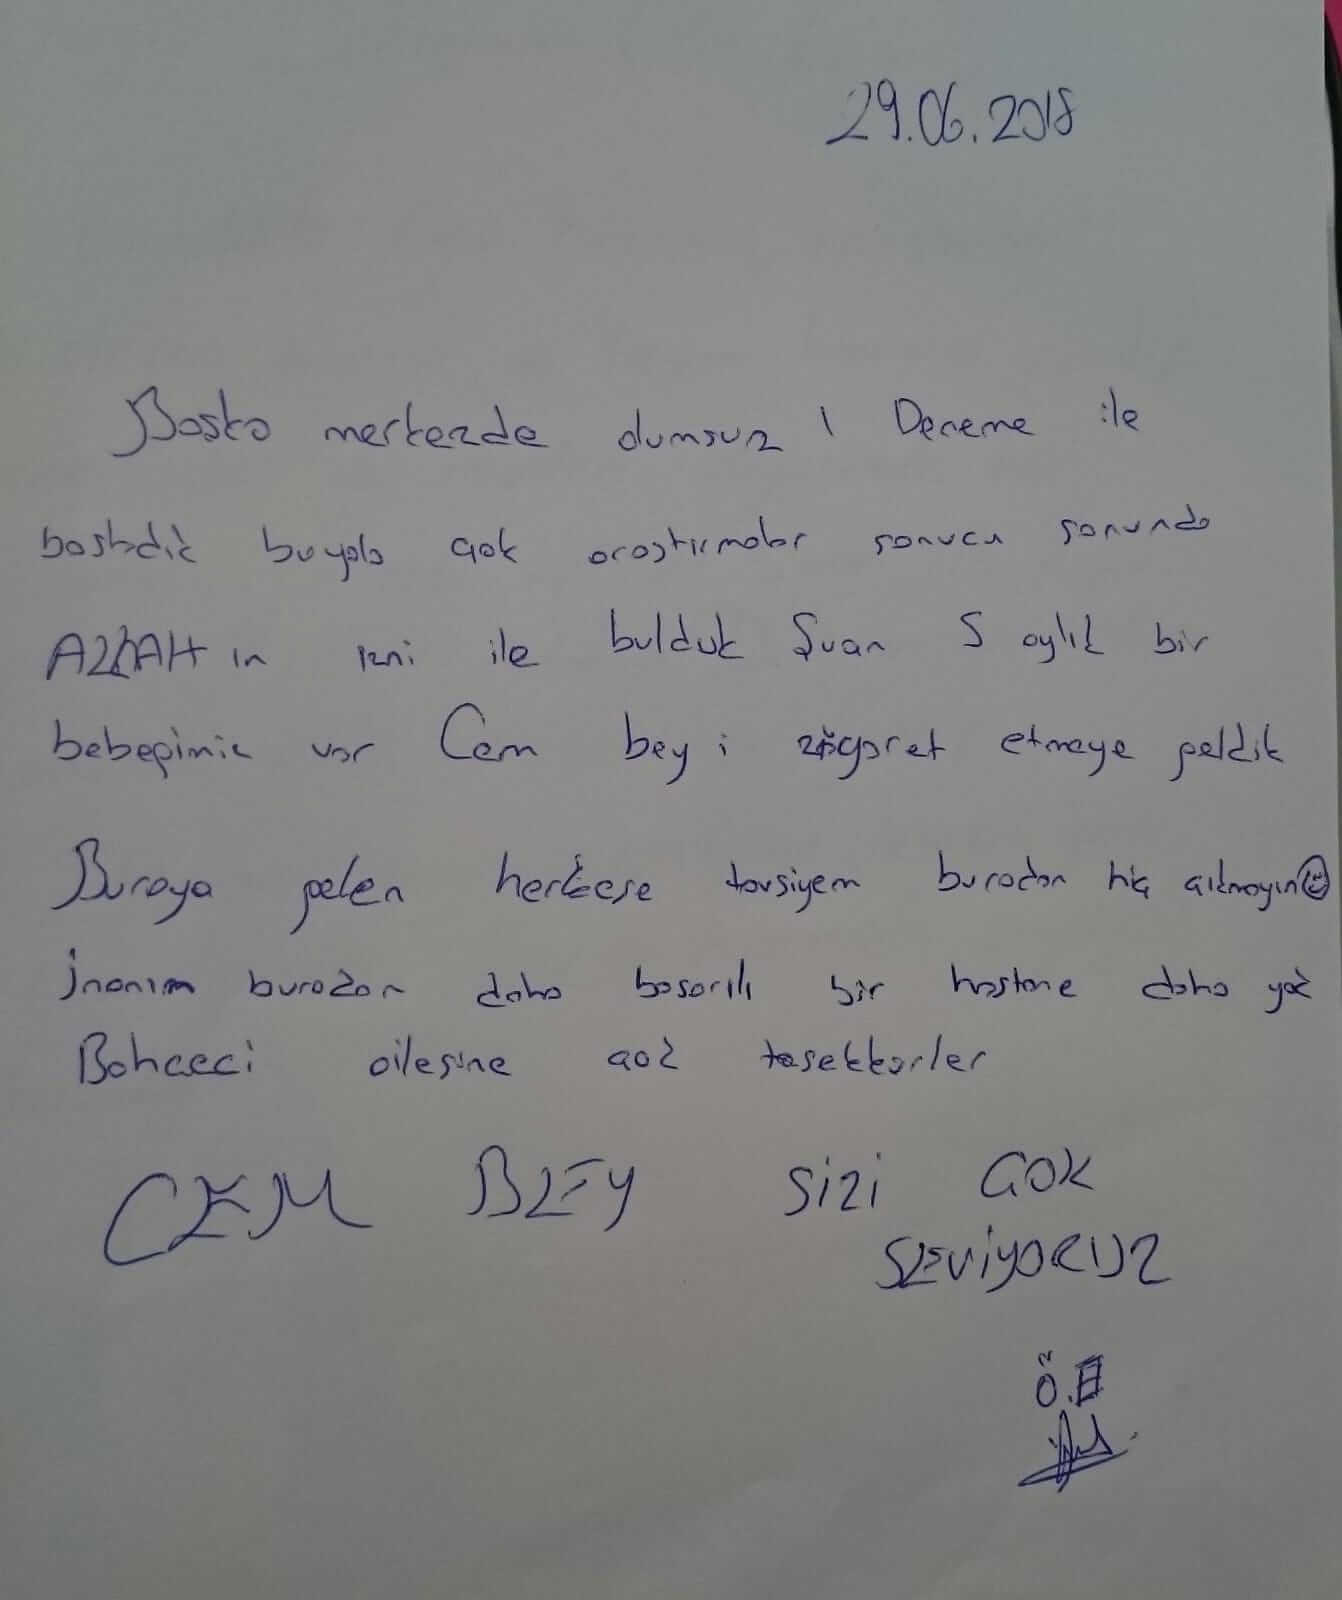 29.06.2018
Başka merkezde olumsuz 1 Deneme ile
başladık bu yola çok araştırmalar sonucu sonunda
ALLAH ın izni ile bulduk Şuan 5 aylık bir
bebeğimiz var Cem bey i ziyaret etmeye geldik
Buraya gelen herkese tavsiyem buradan hiç çıkmayın☺
İnanın buradan daha başarılı bir hastane daha yok
Bahçeci ailesine çok teşekkürler
CEM BEY SİZİ ÇOK
SEVİYORUZ